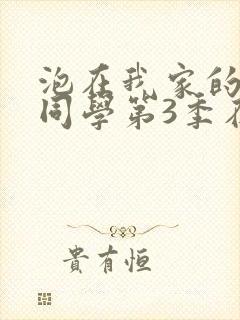 泡在我家的
同學第3季在
貴有恒